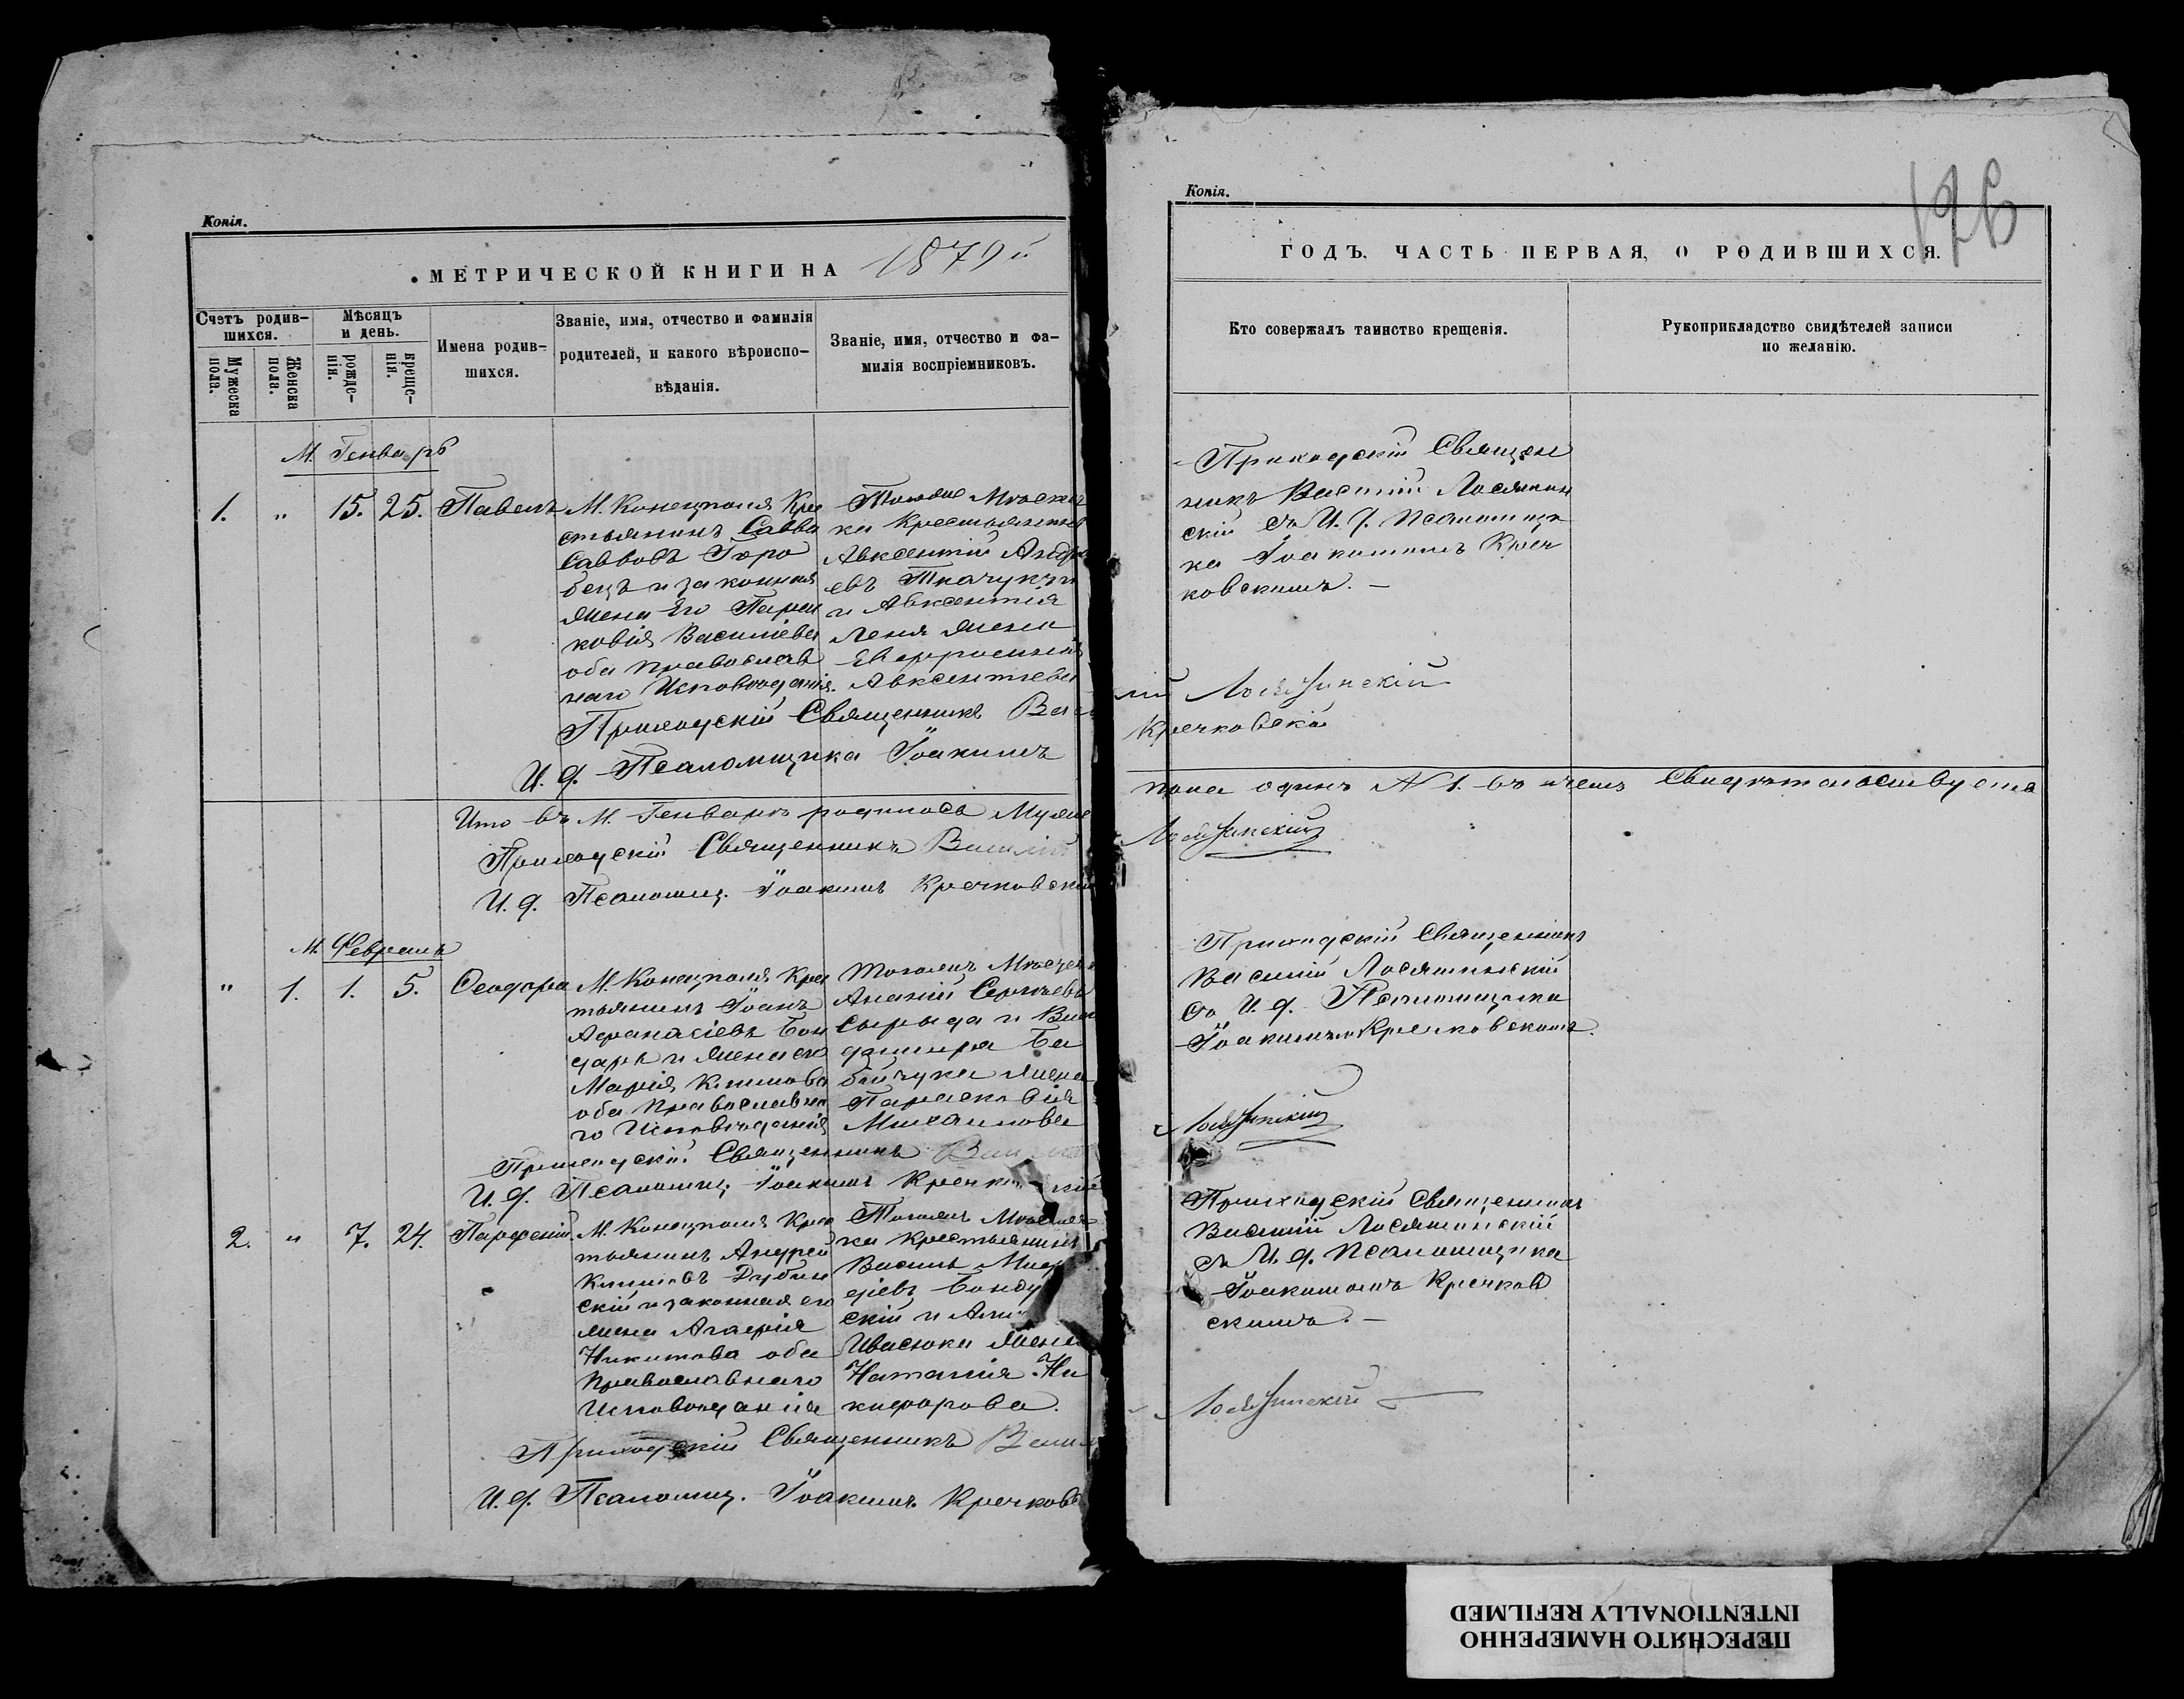 Копія.
МЕТРИЧЕСКОЙ КНИГИ НА 1879й
Счетъ родив-
шихся.
Мужеска
пола.
Женска
пола.
Мѣсяцъ
и день.
рожде-
нія.
креще-
нія.
Имена родив-
шихся.
Званіе, имя, отчество и фамилія
родителей, и какого вѣроиспо-
вѣданія.
Званіе, имя, отчество и фа-
милія воспріемниковъ.
М. Генварь
1. " 15. 25. Павелъ
М. Конецполя Крес
стьянинъ Савва
Саввовъ Горо
бецъ и законная
жена Его Парас
ковія Василіева
оба православ
наго Исповѣданія.
ки Крестьянинъ
Авксентій Андре
евъ Ткачукъ и
и Авксентія
жена
Евфросинія
Авксентіева
Приходскій Священникъ Вас
И. д. Псаломщика Іоакимъ
Что въ М. Генварѣ родилось Муже
Приходскій Священникъ Василій
И. д. Псаломщ. Іоакимъ Кречковскій
М. Февраль
" 1. 1. 5. Ѳеодора
М. Конецполя Крес
тьянинъ Іоанъ
Афанасіевъ Бон
дарь и жена его
Марія Климова
оба православна
го Исповѣданія
Тогожъ Мѣстеч
Сергѣевъ
и Вла
димира Ба
бійчука жена
Парасковія
Михаилова
Приходскій Священникъ Василій
И. д. Псаломщ. Іоакимъ Кречковскій
2. " 7. 24. Парфеній
М. Конецполя Крес
тьянинъ Андрей
Климовъ Дубин
скій и законная его
жена Агафія
Никитова оба
православнаго
Исповѣданія
Тогожъ Мѣстеч
ка Крестьянинъ
Василь
Бонду
скій и
Ивасюка жена
Наталія Ни
кифорова.
Приходскій Священникъ Васил
И. д. Псаломщ. Іоакимъ Кречковс
Копія.
126
ГОДЪ, ЧАСТЬ ПЕРВАЯ, О РОДИВШИХСЯ.
Кто совержалъ таинство крещенія.
Рукоприкладство свидѣтелей записи
по желанію.
Приходскій Священ
никъ Василій Лосятин
скій съ И. д. Псаломщи
ка Іоакимомъ Креч
ковскимъ. —
лій Лосятинскій
Кречковскій
пола одинъ № 1. въ чемъ Свидѣтельствуетъ
Лосятинскій
Приходскій Священникъ
Василій Лосятинскій
съ И. д. Псаломщика
Іоакимомъ Кречковскимъ.
Лосятинскій
Приходскій Священникъ
Василій Лосятинскій
съ И. д. Псаломщика
Іоакимомъ Кречков
скимъ. —
Лосятинскій
ПЕРЕСНЯТО НАМЕРЕННО
INTENTIONALLY REFILMED